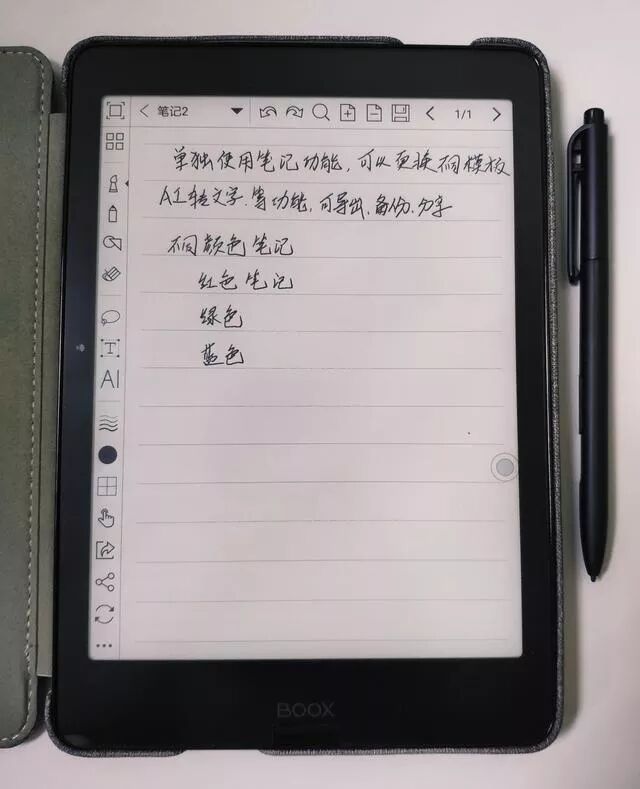 笔记2
1/1
单独使用笔记功能,可以更换不同模板
AI转文字.等功能,可导出.备份.分享
不同颜色笔记
红色笔记
绿色
蓝色
T
AI
BOOX